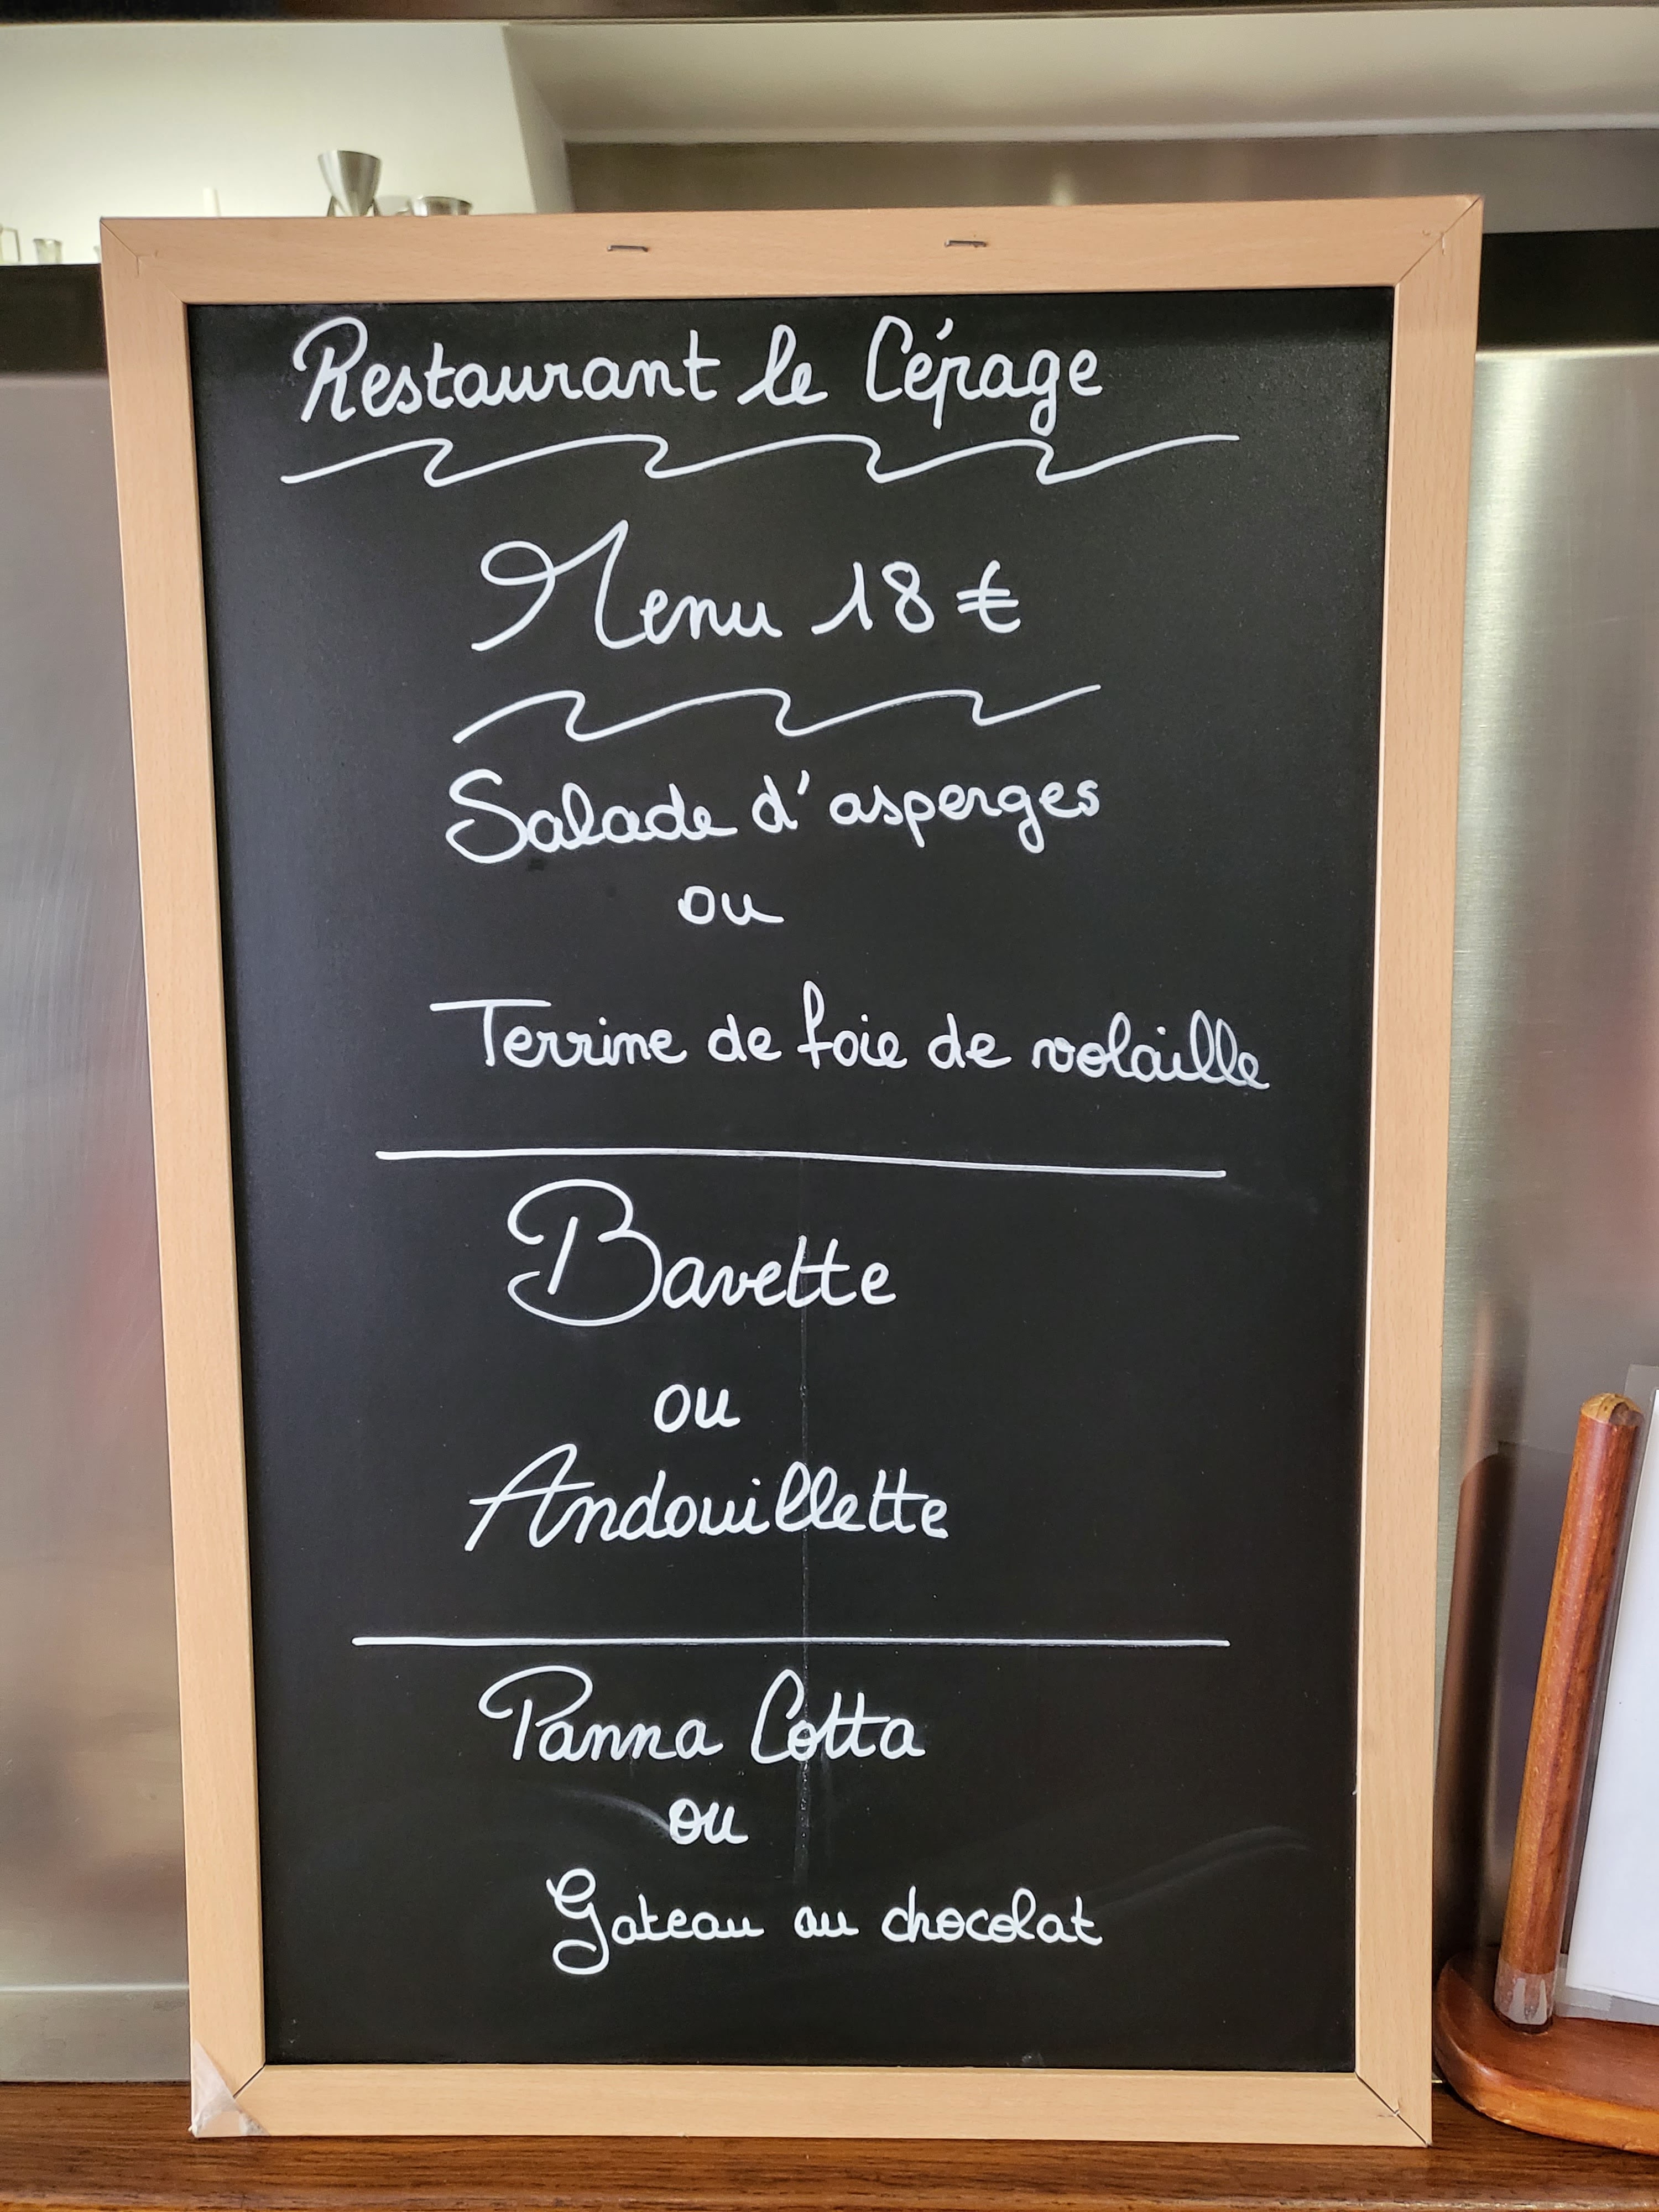 Restaurant le Cépage
Menu 18 €
Salade d'asperges
ou
Terrine de foie de volaille
Bavette
ou
Andouillette
Panna Cotta
ou
Gateau au chocolat